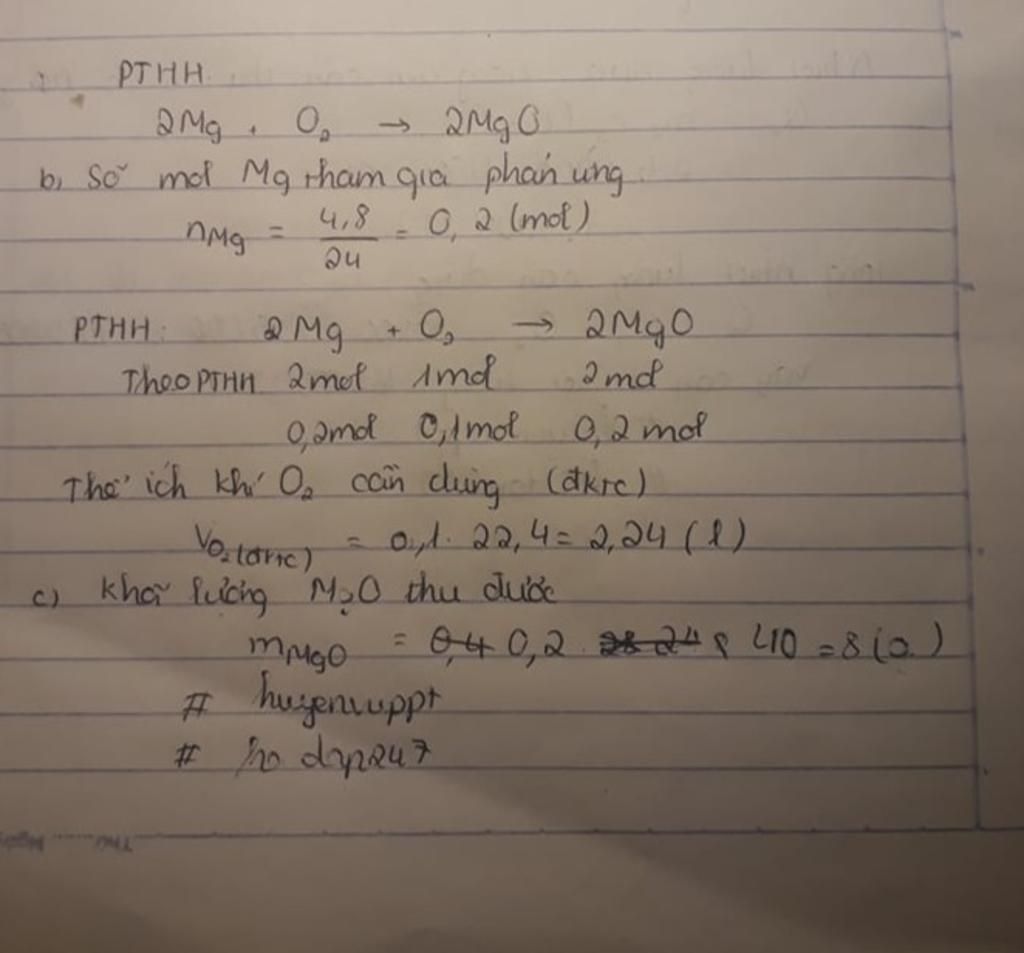 PTHH
2Mg + O₂ → 2MgO
b, Số mol Mg tham gia phản ứng
nMg = 4,8 / 24 = 0,2 (mol)
PTHH: 2Mg + O₂ → 2MgO
Theo PTHH 2mol 1mol 2mol
0,2mol 0,1mol 0,2mol
Thể ích khí O₂ cần dùng (đktc)
VO₂(đktc) = 0,1. 22,4 = 2,24 (l)
c) Khối lượng M₂O thu được
mMgO = 0,4 0,2 . 28 24 40 = 8 (g)
# huyenvuppt
# dyp247